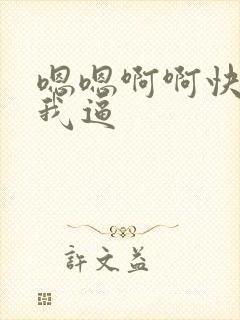 嗯嗯啊啊快
我逼
許文益